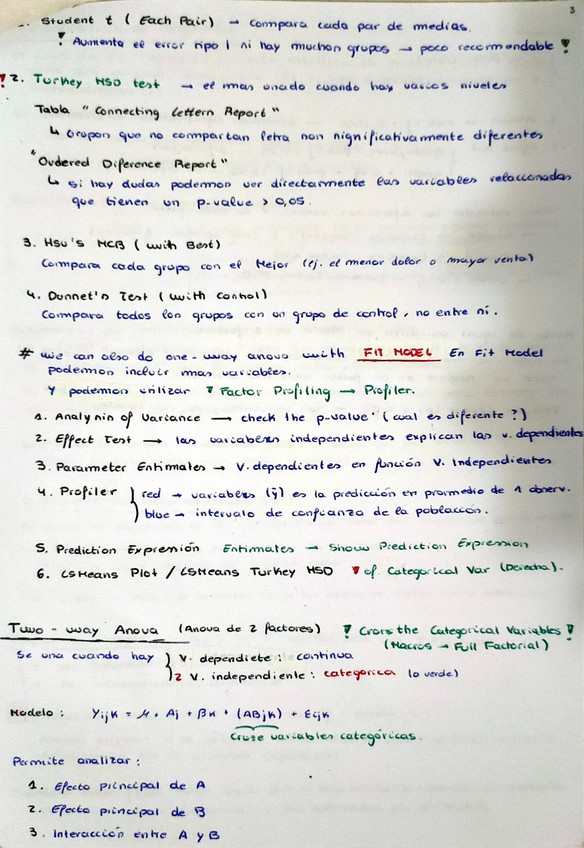 3
1. Student t ( Each Pair) → compara cada par de medias.
! Aumenta el error tipo I si hay muchos grupos → poco recomendable !
! 2. Turkey HSD test → el mas usado cuando hay varios niveles
Tabla " Connecting Letters Report "
↳ Grupos que no compartan letra son significativamente diferentes
"Ordered Diference Report"
↳ si hay dudas podemos ver directamente las variables relacionadas
que tienen un p-value > 0,05.
3. Hsu's MCB ( with Best)
Compara cada grupo con el Mejor (ej. el menor dolor o mayor venta)
4. Dunnet's Test ( with Control)
Compara todos los grupos con un grupo de control, no entre sí.
# we can also do one-way anova with FIT MODEL En Fit Model
podemos incluir mas variables.
Y podemos utilizar ▼ Factor Profiling → Profiler.
1. Analysis of Variance → check the p-value ( cual es diferente ?)
2. Effect Test → las variables independientes explican las v. dependientes
3. Parameter Estimates → V. dependientes en función V. Independientes
4. Profiler } red → variables (ŷ) es la predicción en promedio de 1 observ.
blue → intervalo de confianza de la población.
5. Prediction Expresión Estimates → Show Prediction Expression
6. LSMeans Plot / LSMeans Turkey HSD ▼ of Categorical Var (Derecha).
Two-way Anova (Anova de 2 factores) ! Cross the Categorical Variables !
(Macros → Full Factorial)
Se usa cuando hay } V. dependiete : continua
2 V. independiente : categorica (lo verde)
Modelo : Yijk = μ + Aj + Bk + (ABjk) + Eijk
Cruze variables categóricas.
Permite analizar :
1. Efecto principal de A
2. Efecto principal de B
3. Interacción entre A y B